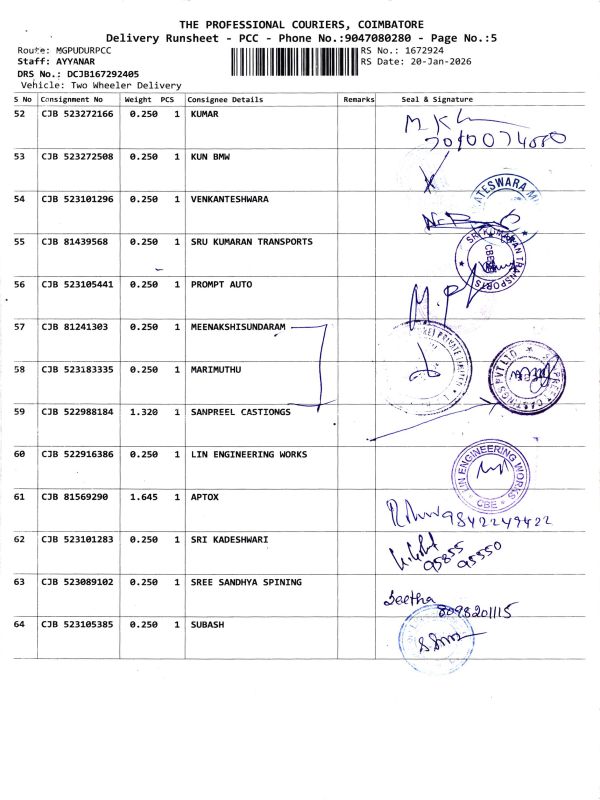 THE PROFESSIONAL COURIERS, COIMBATORE
Delivery Runsheet - PCC - Phone No.:9047080280 - Page No.:5
Route: MGPUDURPCC RS No.: 1672924
Staff: AYYANAR RS Date: 20-Jan-2026
DRS No.: DCJB167292405
Vehicle: Two Wheeler Delivery
S No Consignment No Weight PCS Consignee Details Remarks Seal & Signature
52 CJB 523272166 0.250 1 KUMAR
53 CJB 523272508 0.250 1 KUN BMW
54 CJB 523101296 0.250 1 VENKANTESHWARA
55 CJB 81439568 0.250 1 SRU KUMARAN TRANSPORTS
SRI KUMARAN TRANSPORTS
CBE
56 CJB 523105441 0.250 1 PROMPT AUTO
57 CJB 81241303 0.250 1 MEENAKSHISUNDARAM
58 CJB 523183335 0.250 1 MARIMUTHU
PRIVATE LIMITED
CASTINGS PVT LTD
59 CJB 522988184 1.320 1 SANPREEL CASTIONGS
60 CJB 522916386 0.250 1 LIN ENGINEERING WORKS
LIN ENGINEERING WORKS
CBE
61 CJB 81569290 1.645 1 APTOX
9842249422
62 CJB 523101283 0.250 1 SRI KADESHWARI
95855
95550
63 CJB 523089102 0.250 1 SREE SANDHYA SPINING
Seetha
8098201115
64 CJB 523105385 0.250 1 SUBASH